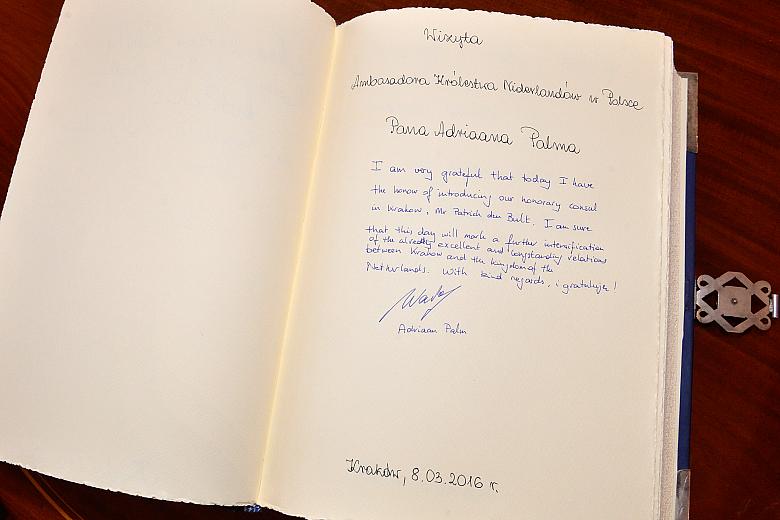 Wizyta
Ambasadora Królestwa Niderlandów w Polsce
Pana Adriaana Palma
I am very grateful that today I have
the honour of introducing our honorary consul
in Krakow, Mr Patrick den Bult. I am sure
that this day will mark a further intensification
of the already excellent and longstanding relations
between Krakow and the Kingdom of the
Netherlands. With kind regards, i gratuluję!
Adriaan Palm
Kraków, 8.03.2016 r.